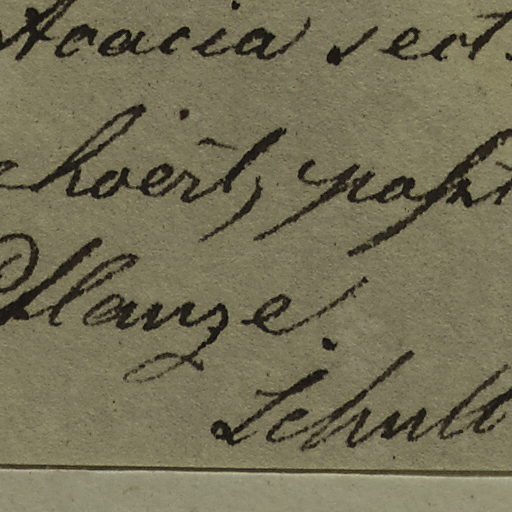 Acacia sect.
ehoert, paßt
Pflanze.
Schult